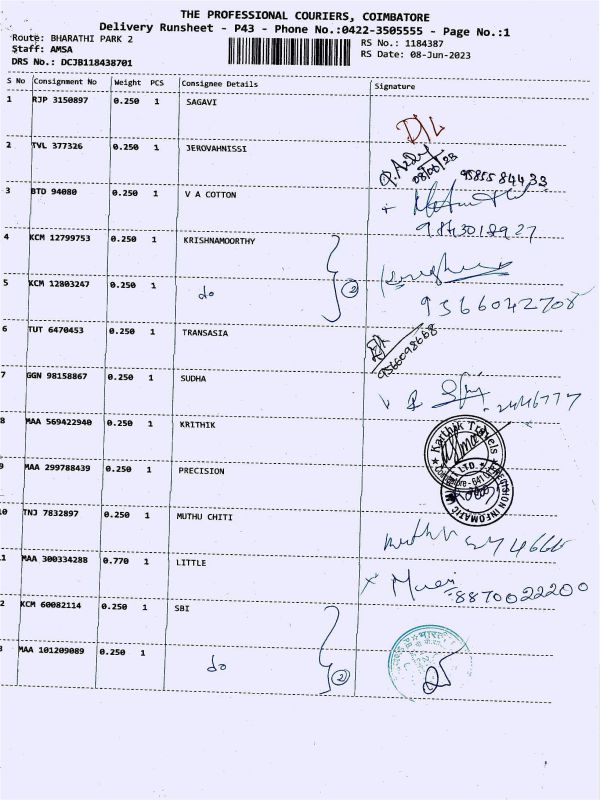 THE PROFESSIONAL COURIERS, COIMBATORE
Delivery Runsheet - P43 - Phone No.:0422-3505555 - Page No.:1
Route: BHARATHI PARK 2
Staff: AMSA
DRS No.: DCJB118438701
RS No.: 1184387
RS Date: 08-Jun-2023
S No Consignment No Weight PCS Consignee Details Signature
1 RJP 3150897 0.250 1 SAGAVI
2 TVL 377326 0.250 1 JEROVAHNISSI
08/06/23 9585584433
3 BTD 94080 0.250 1 V A COTTON
9843018927
4 KCM 12799753 0.250 1 KRISHNAMOORTHY
5 KCM 12803247 0.250 1 do 2
9366042708
6 TUT 6470453 1 0.250 TRANSASIA
9566098668
7 GGN 98158867 0.250 1 SUDHA
2446777
8 MAA 569422940 0.250 1 KRITHIK
Karthik Travels
LTD.
9 MAA 299788439 0.250 1 PRECISION
PRECISION INFOMATIC
10 TNJ 7832897 0.250 1 MUTHU CHITI
Muthu
11 MAA 300334288 0.770 1 LITTLE
8870022200
2 KCM 60082114 0.250 1 SBI
3 MAA 101209089 0.250 1 do 2